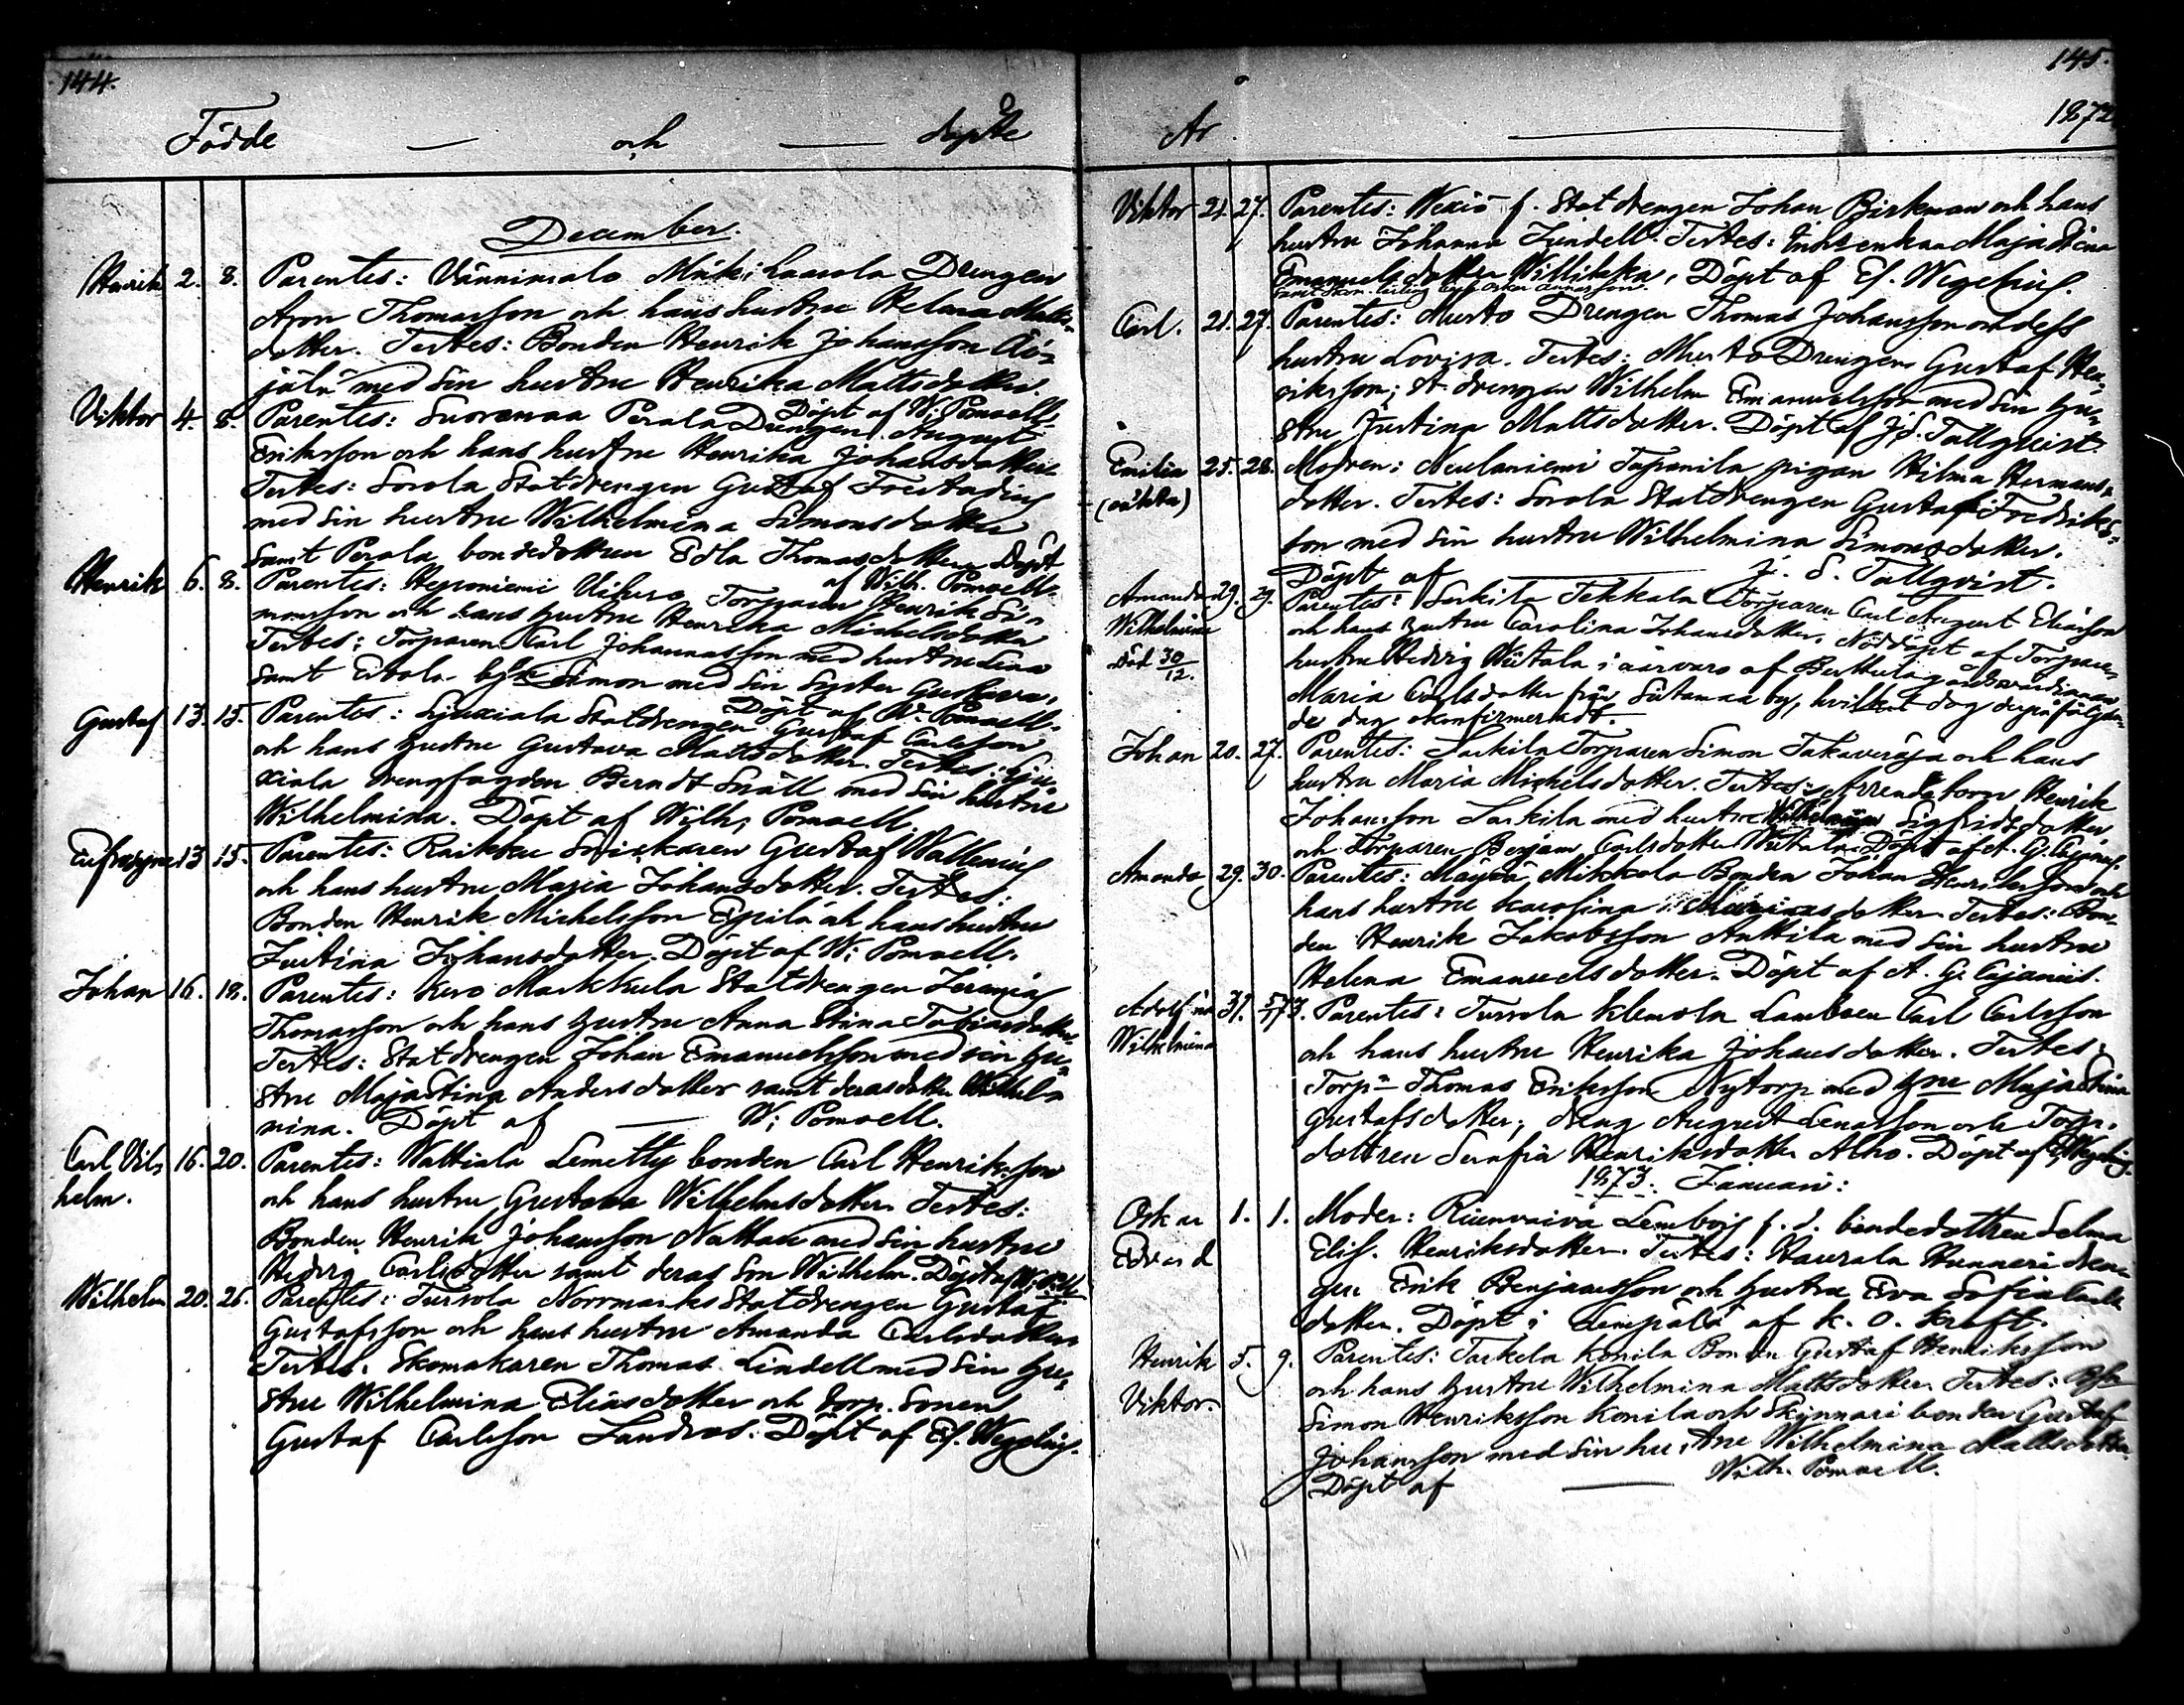 144.
Födde — och — döpte
December.
Henrik 2. 8. Parentes: Vännimalo Mäki Laurola Drengen
Aron Thomasson och hans hustru Helena Matts-
dotter. Testes: Bonden Henrik Johansson
jälä med sin hustru Henrika Mattsdotter.
Döpt af W. Pomoell.
Viktor 4. 8. Parentes: Suoremaa Perala Drengen August
Eriksson och hans hustru Henrika Johansdotter
Testes: Sorola Statdrengen Gustaf
med sin hustru Wilhelmina Simonsdotter
samt Perala bondedottren Edla Thomasdotter Döpt
af Wilh. Pomoell.
Henrik 6. 8. Parentes: Heponiemi Torparen Henrik Si-
monsson och hans hustru Henrika Michelsdotter
Testes: Torparen Karl Johannasson med hustru Lisa
samt Simon med sin syster Gustava,
Döpt af W. Pomoell.
Gustaf 13. 15. Parentes: Ljuxiala Statdrengen Gustaf Carlsson
och hans hustru Gustava Mattsdotter. Testes: Lju-
xiala drengfogden Berndt Snäll med sin hustru
Wilhelmina. Döpt af Wilh. Pomoell.
Eufrosyne 13 15. Parentes: Raikku Snickaren Gustaf Wallenius
och hans hustru Maria Johansdotter. Testes:
Bonden Henrik Michelsson Epilä och hans hustru
Justina Johansdotter. Döpt af W. Pomoell.
Johan 16. 18. Parentes: Kero Markkula Statdrengen Jeremias
Thomasson och hans hustru Anna Stina Tobiasdotter.
Testes: Statdrengen Johan Emanuelsson med sin hu-
stru Maja Stina Andersdotter samt deras dotter Wilhel-
mina. Döpt af — W. Pomoell.
Carl Vil- 16. 20. Parentes: Wattiala Lemetty bonden Carl Henriksson
helm. och hans hustru Gustava Wilhelmsdotter. Testes:
Bonden Henrik Johansson Nattari med sin hustru
Hedvig Carlsdotter samt deras son Wilhelm. Döpt af
Wilhelm 20. 26. Parentes: Tursola Norrmarks Statdrengen Gustaf
Gustafsson och hans hustru Amanda Carlsdotter
Testes. Skomakaren Thomas Lindell med sin hu-
stru Wilhelmina Eliasdotter och torp. sonen
Gustaf Carlsson Landros. Döpt af Ef. Wegelius.
145.
År — 1872
Viktor 21. 27. Parentes: Wexiö f. Statdrengen Johan Birkman och hans
hustru Johanna Lindell. Testes: Maja Stina
Emanuelsdotter Willilaka, Döpt af Ef. Wegelius.
Carl. 21. 27. Parentes: Musto Drengen Thomas Johansson och dess
hustru Lovisa. Testes: Musto Drengen Gustaf Hen-
riksson; St. drengen Wilhelm Emanuelsson med sin hu-
stru Justina Mattsdotter. Döpt af J. S. Tallqvist.
Emilia 25. 28. Modren: Neulaniemi Tapanila pigan Hilma Hermans-
(oäkta) dotter. Testes: Sorola Statdrengen Gustaf Fredriks-
son med sin hustru Wilhelmina Simonsdotter.
Döpt af — J. S. Tallqvist.
Amanda 29. 29. Parentes: Sarkila Tekkala Torparen Carl August Eliasson
Wilhelmina och hans hustru Carolina Johansdotter. Nöddöpt af Torpare
Död 30/12. hustru Hedvig Wiitala i närvaro af Penttilä
Maria Carlsdotter från Siitamaa by, hvilket dop derpå följan-
de dag konfirmerades.
Johan 20. 27. Parentes: Sarkila Torparen Simon Takaveräja och hans
hustru Maria Michelsdotter. Testes: Arrendatorn Henrik
Johansson Sarkila med hustru Wilhelmina Sigfridsdotter
och Torparen Benjam. Carlsdotter Wiitala. Döpt af A. G. Cajanus.
Amanda 29. 30. Parentes: Mäyrä Mikkola Bonden Johan Henriksson och
hans hustru Karolina dotter. Testes: Bon-
den Henrik Jakobsson Anttila med sin hustru
Helena Emanuelsdotter. Döpt af A. G. Cajanus.
Adolfina 31. 5/1 73. Parentes: Tursola Klemola Landboen Carl Carlsson
Wilhelmina och hans hustru Henrika Johansdotter. Testes:
Torpn Thomas Eriksson Nytorp med hru Maja Stina
Gustafsdotter, dräng August Lenasson och Torp.
dottren Serafia Henriksdotter Alho. Döpt af Ef. Wegelius.
1873. Januari:
Oskar 1. 1. Moder: Riienvaiva Lembois f. d. bondedottren Selma
Edvard Elis. Henriksdotter. Testes: Haurala Hunneri dren-
gen Erik Benjamsson och hustru Eva Sofia Carls
dotter. Döpt i Lempälä af K. O. Kraft.
Henrik 5. 9. Parentes: Tarkela Konila Bonden Gustaf Henriksson
Viktor. och hans hustru Wilhelmina Mattsdotter. Testes:
Simon Henriksson Konila och Skinnari bonden Gustaf
Johansson med sin hustru Wilhelmina Mattsdotter.
Döpt af — Wilh. Pomoell.